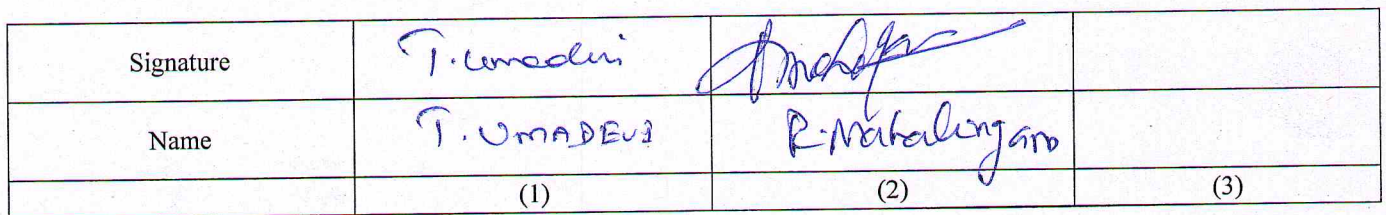 Signature T. Umadevi
Name T. UMADEVI R. Mahalingam
(1) (2) (3)